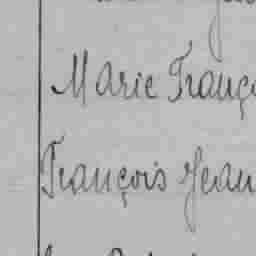 Marie Franç
François Jean